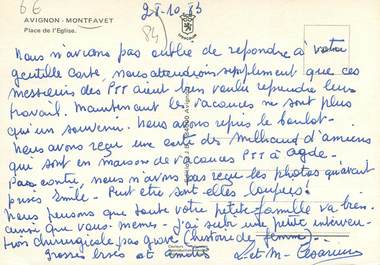 6€
AVIGNON - MONTFAVET
Place de l'Eglise.
28.10.83
84)
Nous n'avions pas oublié de répondre à votre
gentille carte, nous attendions simplement que ces
messieurs des PTT aient bien voulu reprendre leur
travail. Maintenant les vacances ne sont plus
qu'un souvenir. Nous avons repris le boulot-
Nous avons reçu une carte des Milhaud d'amiens
qui sont en maison de vacances PTT à Agde-
Par contre, nous n'avons pas reçu les photos qu'avait
prises Emile - Peut être sont-elles loupées!
Nous pensons que toute votre petite famille va bien.
ainsi que vous-mêmes - J'ai subi une petite interven-
tion chirurgicale pas grave (histoire de femme)...
grosses bises et amitiés